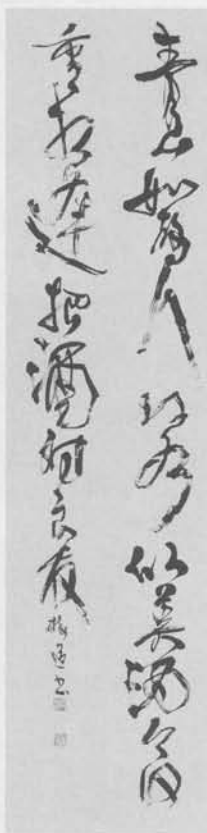 青山如故人江水似美酒今日
重相逢把酒對良友